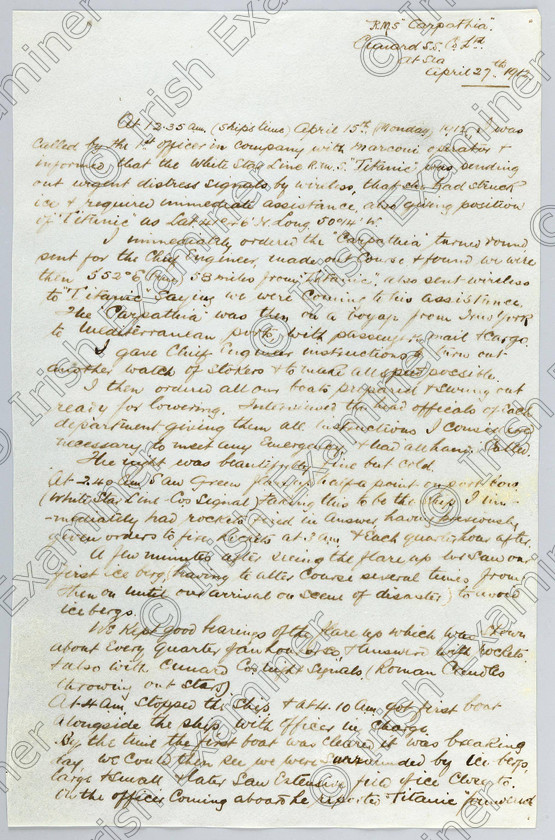 "R.M.S. "Carpathia".
Cunard S.S. Co Ltd
At Sea
April 27th 1912
At 12.35 am. (ship's time) April 15th, (Monday) 1912, I was
called by the 1st officer in company with Marconi operator &
informed that the White Star Line R.M.S. "Titanic" was sending
out urgent distress signals by wireless, that she had struck
ice & required immediate assistance, also giving position
of "Titanic" as Lat 41°46' N. Long 50°14' W.
I immediately ordered the "Carpathia" turned round,
sent for the Chief Engineer, made out course & found we were
then S 52° E (true) 58 miles from "Titanic", also sent wireless
to "Titanic" saying we were coming to his assistance.
The "Carpathia" was then on a voyage from New York
to Mediterranean ports with passengers mail & cargo.
I gave Chief Engineer instructions to turn out
another watch of stokers & to make all speed possible.
I then ordered all our boats prepared & swung out
ready for lowering. Interviewed the head officials of each
department giving them all instructions I considered
necessary to meet any Emergency & had all hands called.
The night was beautifully fine but cold.
At 2.40 am I saw Green flare half a point on port bow
(White Star Line Cos Signal) taking this to be the ship I im-
-mediately had rockets fired in answer, having previously
given orders to fire rockets at 3 am & each quarter hour after.
A few minutes after seeing the flare up we saw our
first ice berg (having to alter course several times from
then on until our arrival on scene of disaster) to avoid
ice bergs.
We kept good bearings of the flare up which was shown
about Every quarter of an hour or so & answered with rockets
& also with Cunard Co night signals (Roman Candles
throwing out stars).
At 4 am, stopped the ship & at 4.10 am got first boat
alongside the ship with officer in charge.
By the time the first boat was cleared it was breaking
day, we could then see we were surrounded by ice bergs,
large & small & later saw Extensive field of ice close to.
On the officer coming aboard he reported "Titanic"